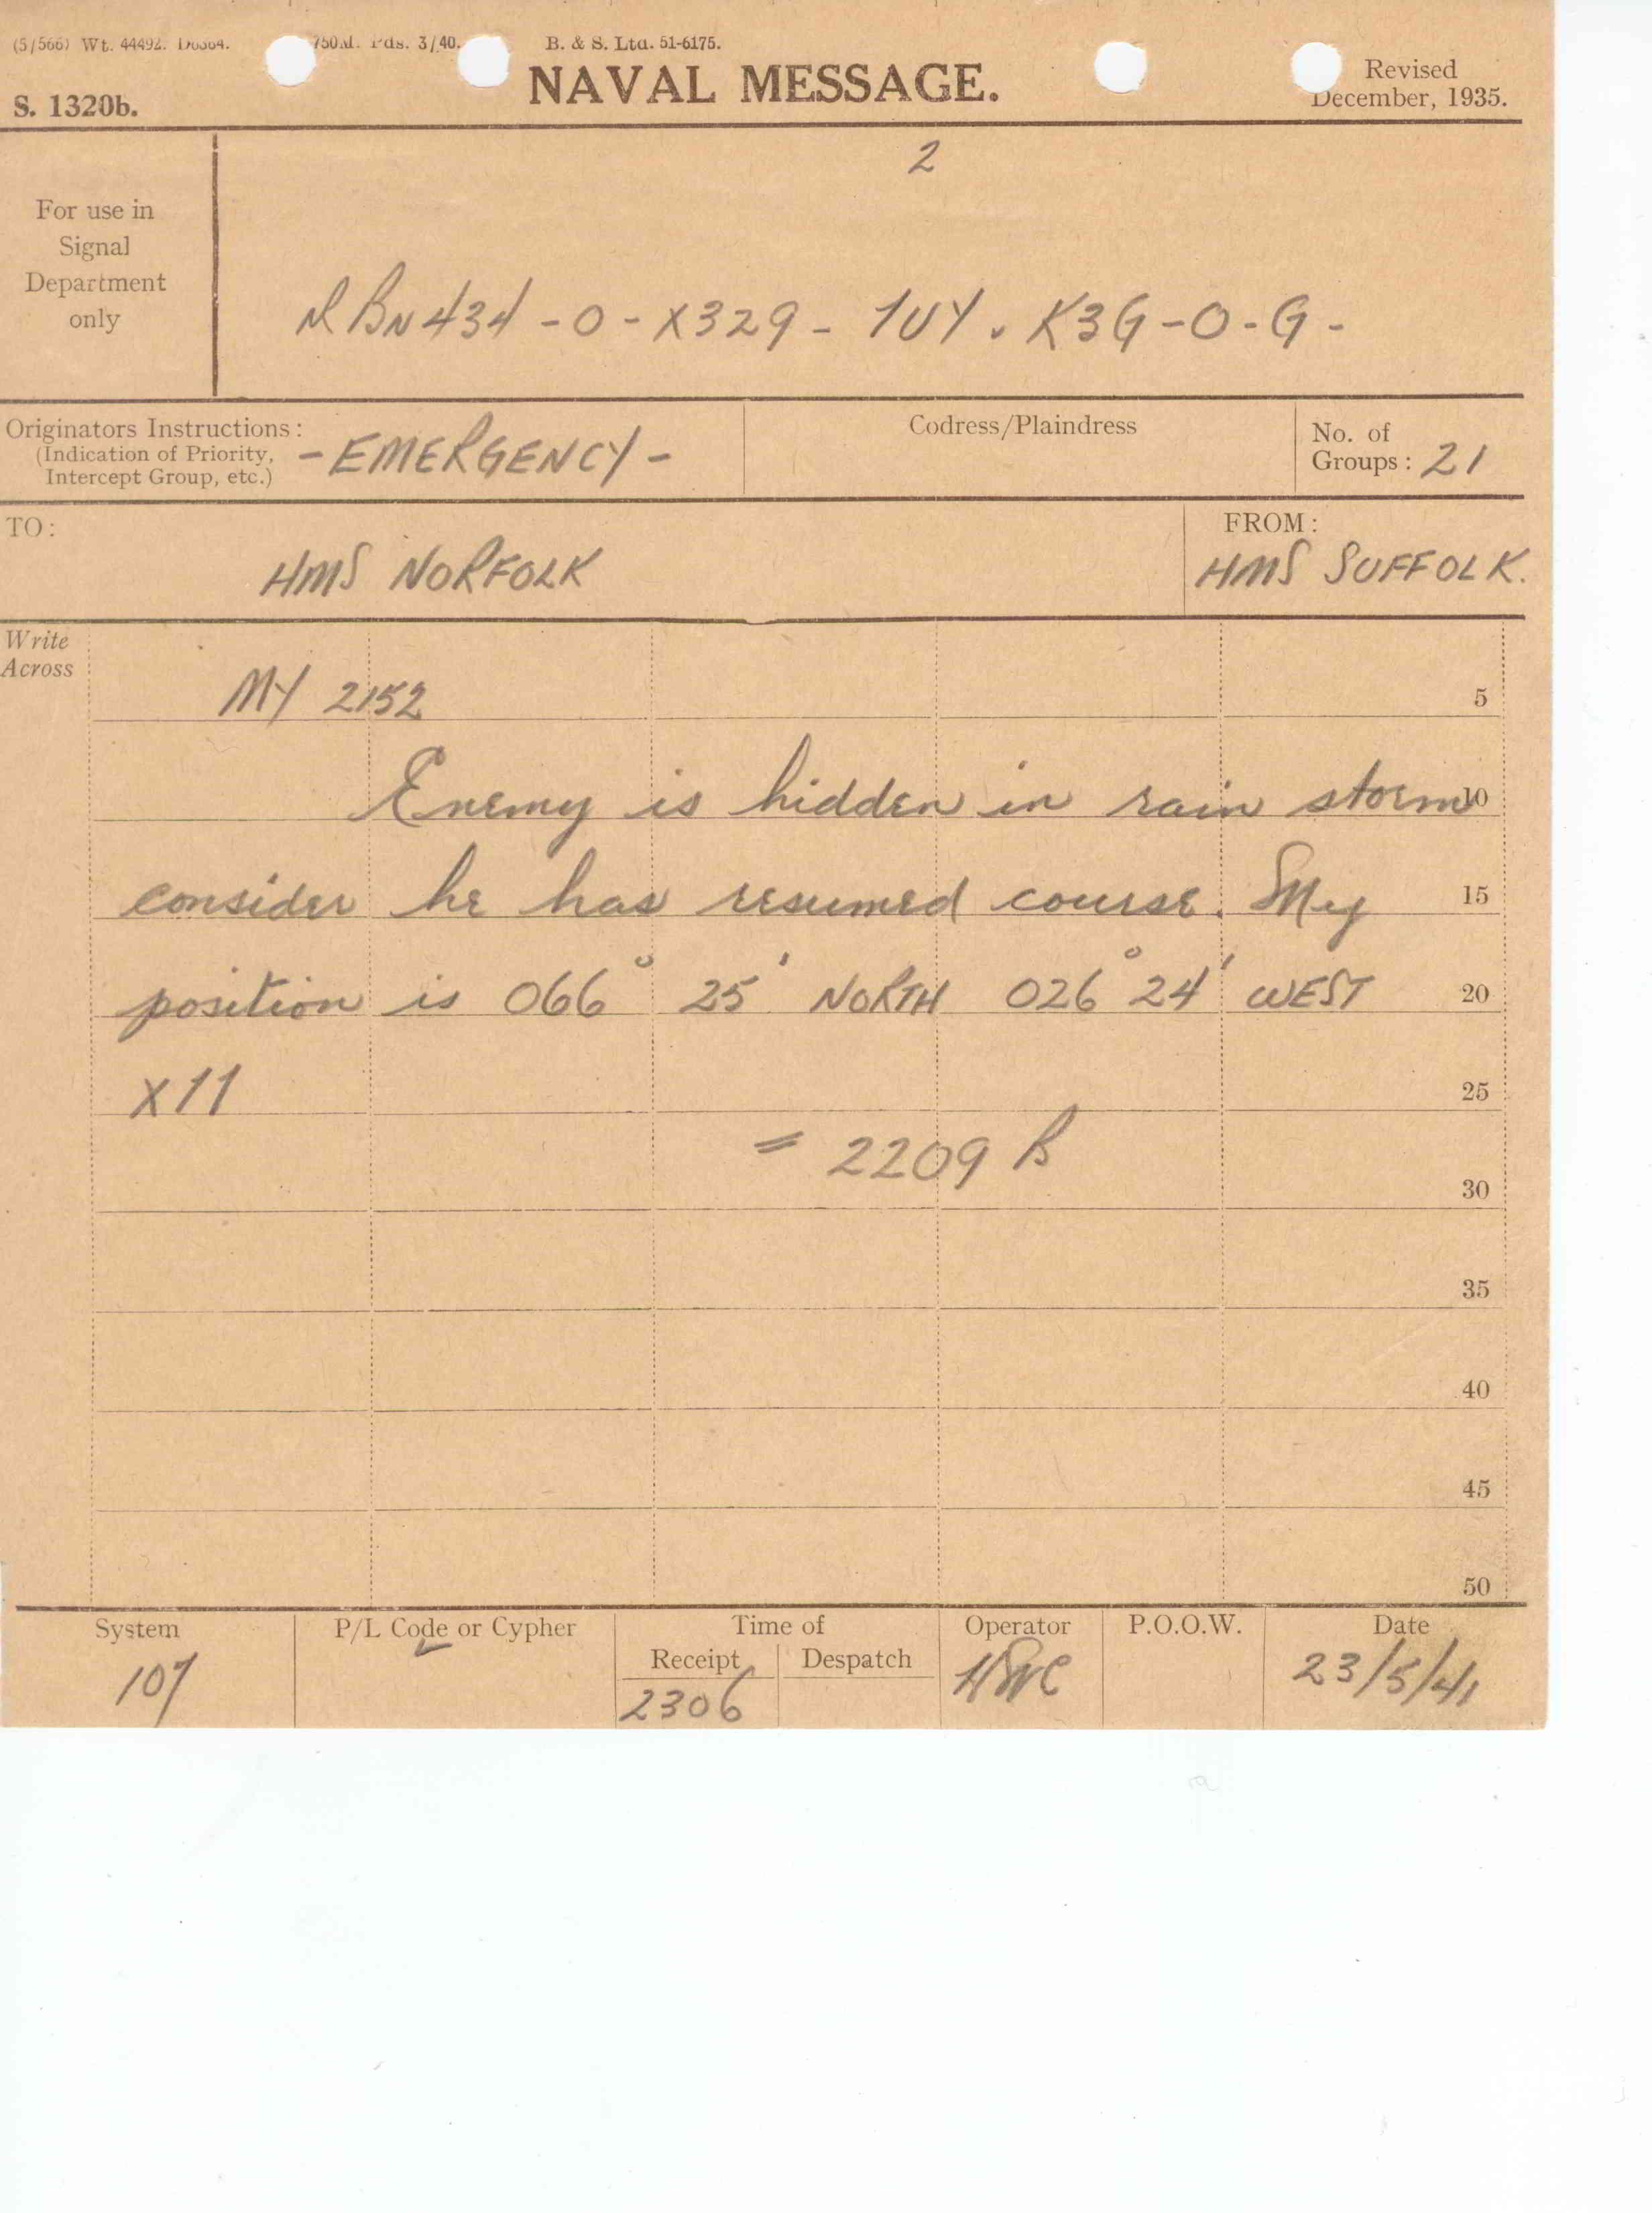 (5/566) Wt. 44492. 750M. Pds. 3/40. B. & S. Ltd. 51-6175.
NAVAL MESSAGE.
Revised
December, 1935.
S. 1320b.
2
For use in
Signal
Department
only
BN434 - O - X329 - 1UY . K3G - O - G -
Originators Instructions:
(Indication of Priority,
Intercept Group, etc.)
- EMERGENCY -
Codress/Plaindress
No. of
Groups: 21
TO:
HMS NORFOLK
FROM:
HMS SUFFOLK.
Write
Across
MY 2152
5
Enemy is hidden in rain storm
10
consider he has resumed course. My
15
position is 066° 25' NORTH 026° 24' WEST
20
X11
25
= 2209 B
30
35
40
45
50
System
P/L Code or Cypher
Time of
Receipt
Despatch
Operator
P.O.O.W.
Date
107
2306
23/5/41